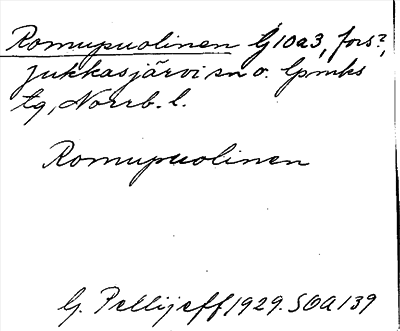 Romupuolinen G10a3, fors?,
Jukkasjärvi sn o. lpmks
tg, Norrb. l.
Romupuolinen
G. Pellijeff 1929. SOA 139